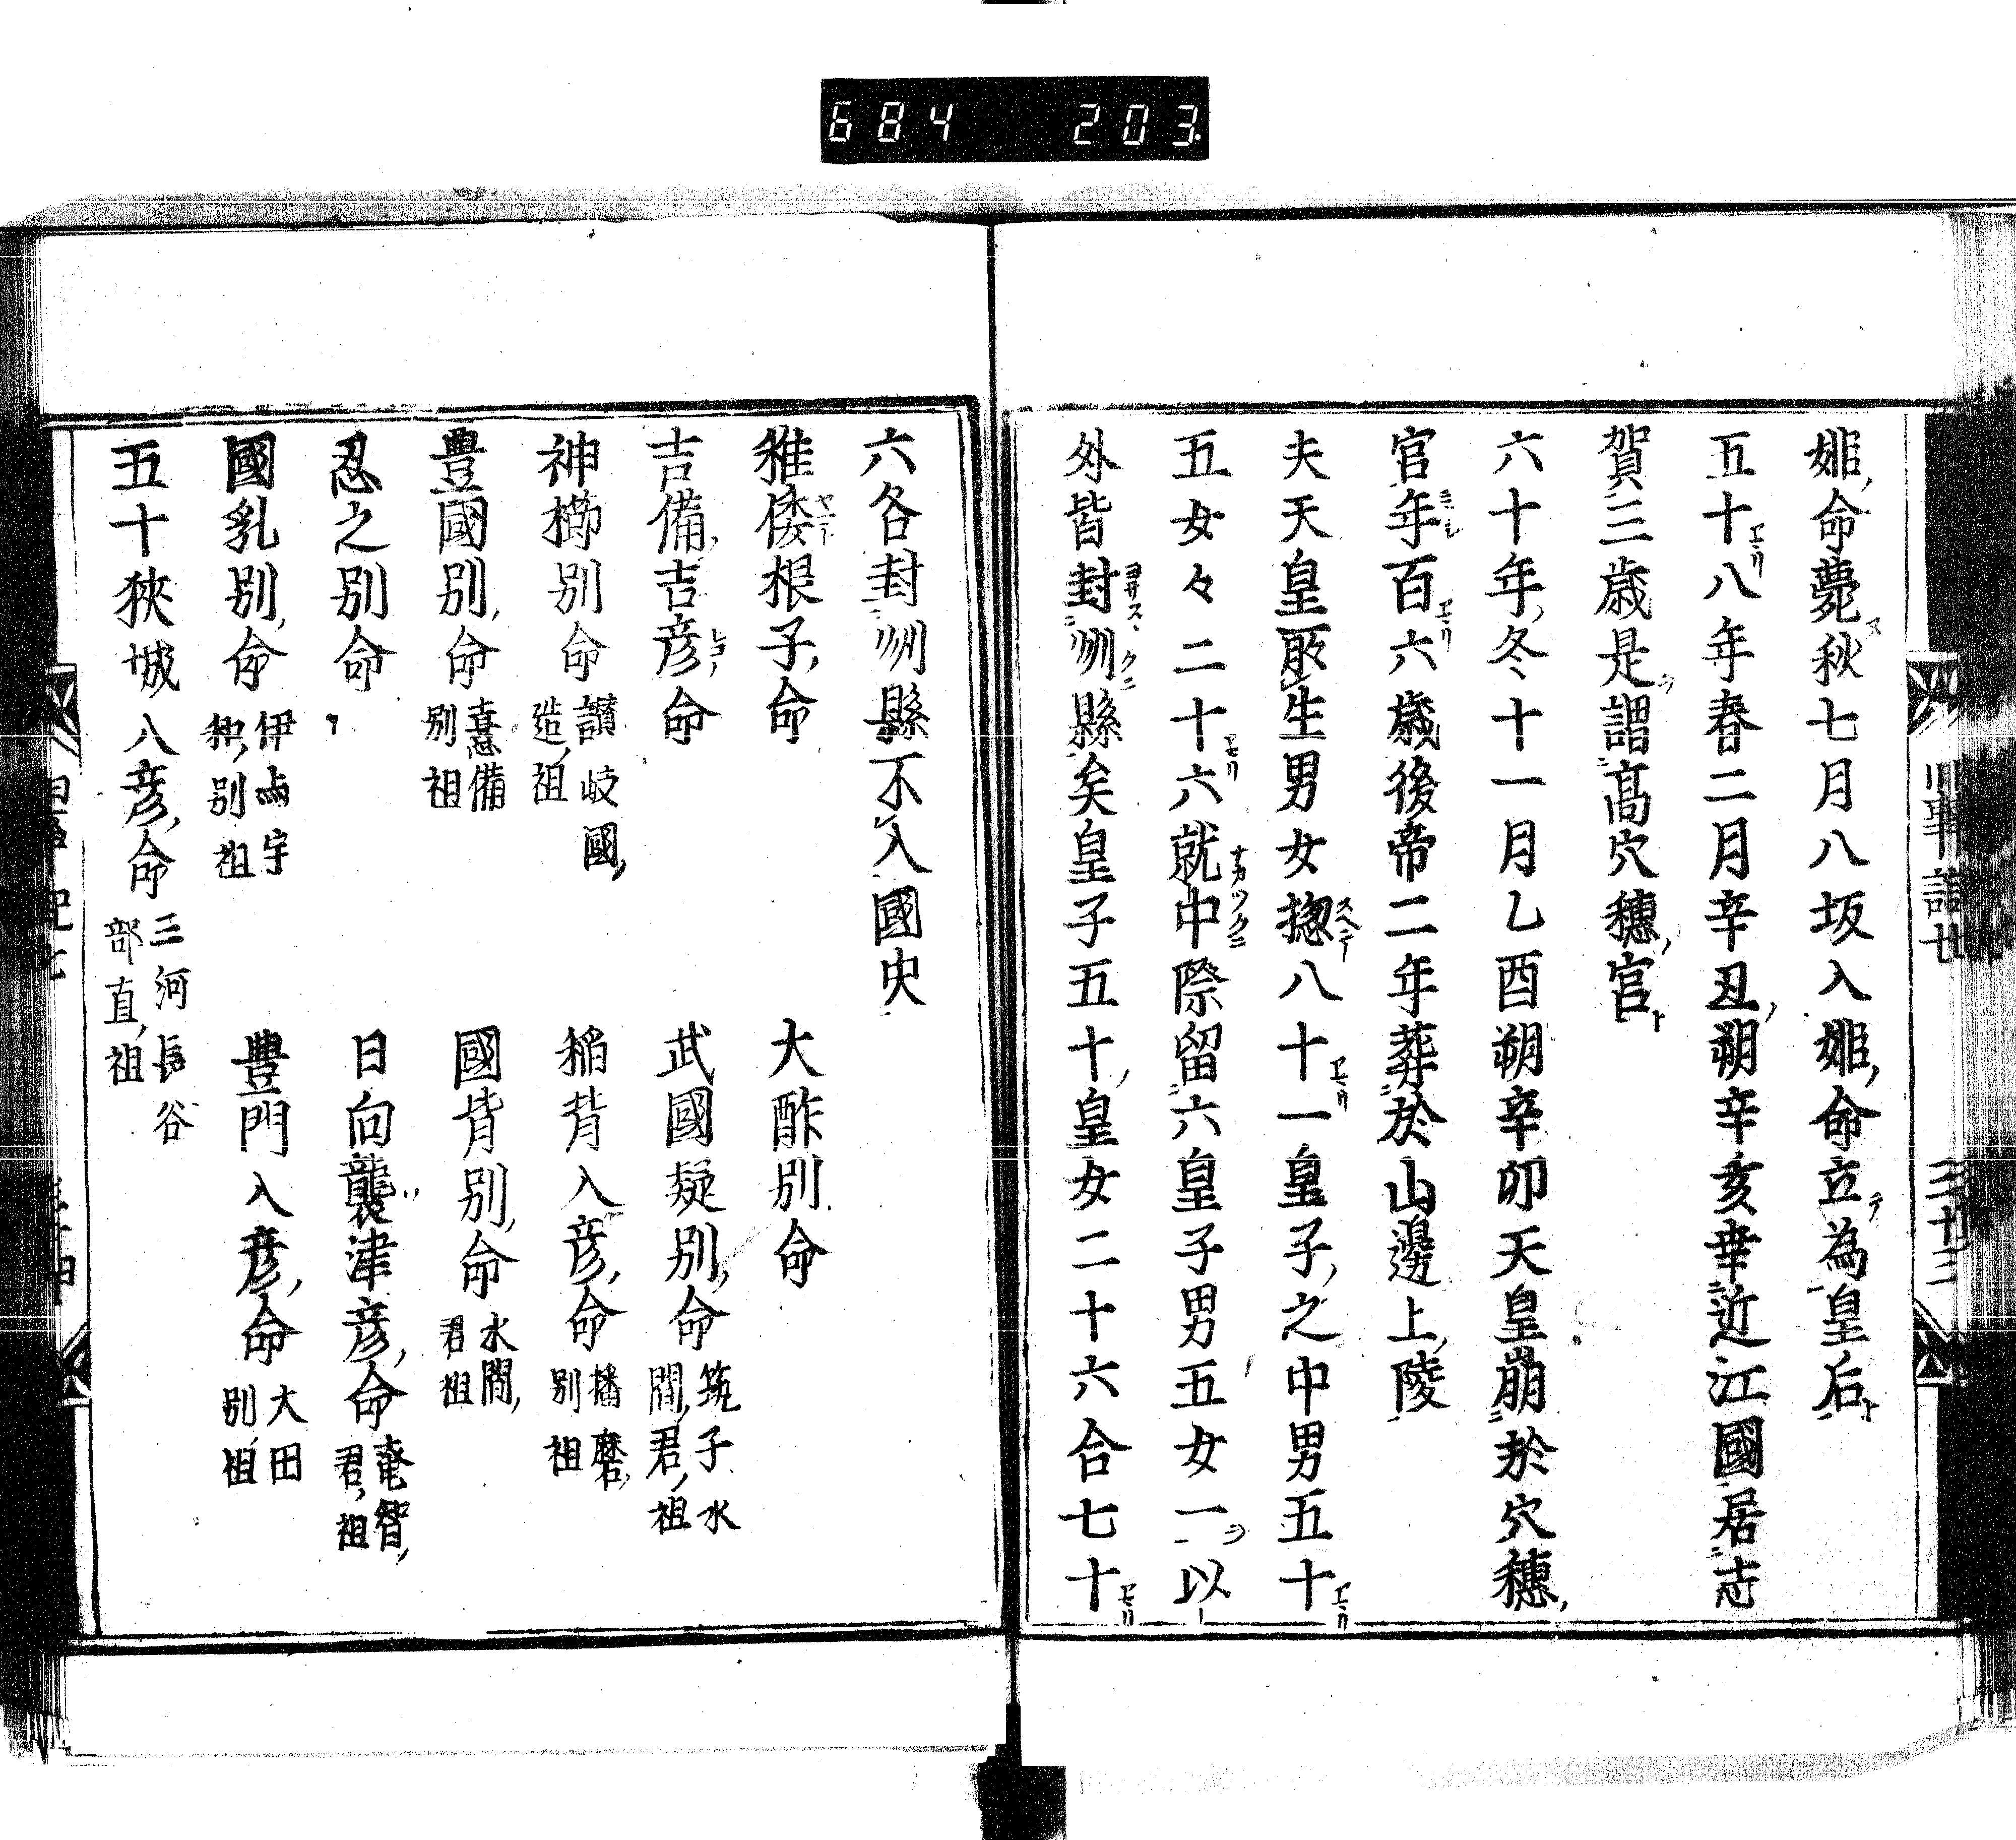 684 203
姫命薨秋七月八坂入姫命立為皇后
五十八年春二月辛丑朔辛亥幸近江國居志
賀三歳是謂髙穴穗宮
六十年冬十一月乙酉朔辛卯天皇崩於穴穗
宮年百六歳後帝二年葬於山邊上陵
夫天皇所生男女揔八十一皇子之中男五十
五女々二十六就中際留六皇子男五女一以
外皆封州縣矣皇子五十皇女二十六合七十
六各封州縣不入國史
稚倭根子命 大酢別命
吉備吉彦命 武國凝別命 筑子水間君祖
神櫛別命 讃岐國造祖 稲背入彦命 播磨別祖
豊國別命 憙備別祖 國背別命 水間君祖
忍之別命 日向襲津彦命 奄智君祖
國乳別命 伊与宇和別祖 豊門入彦命 大田別祖
五十狹城八彦命 三河長谷部直祖